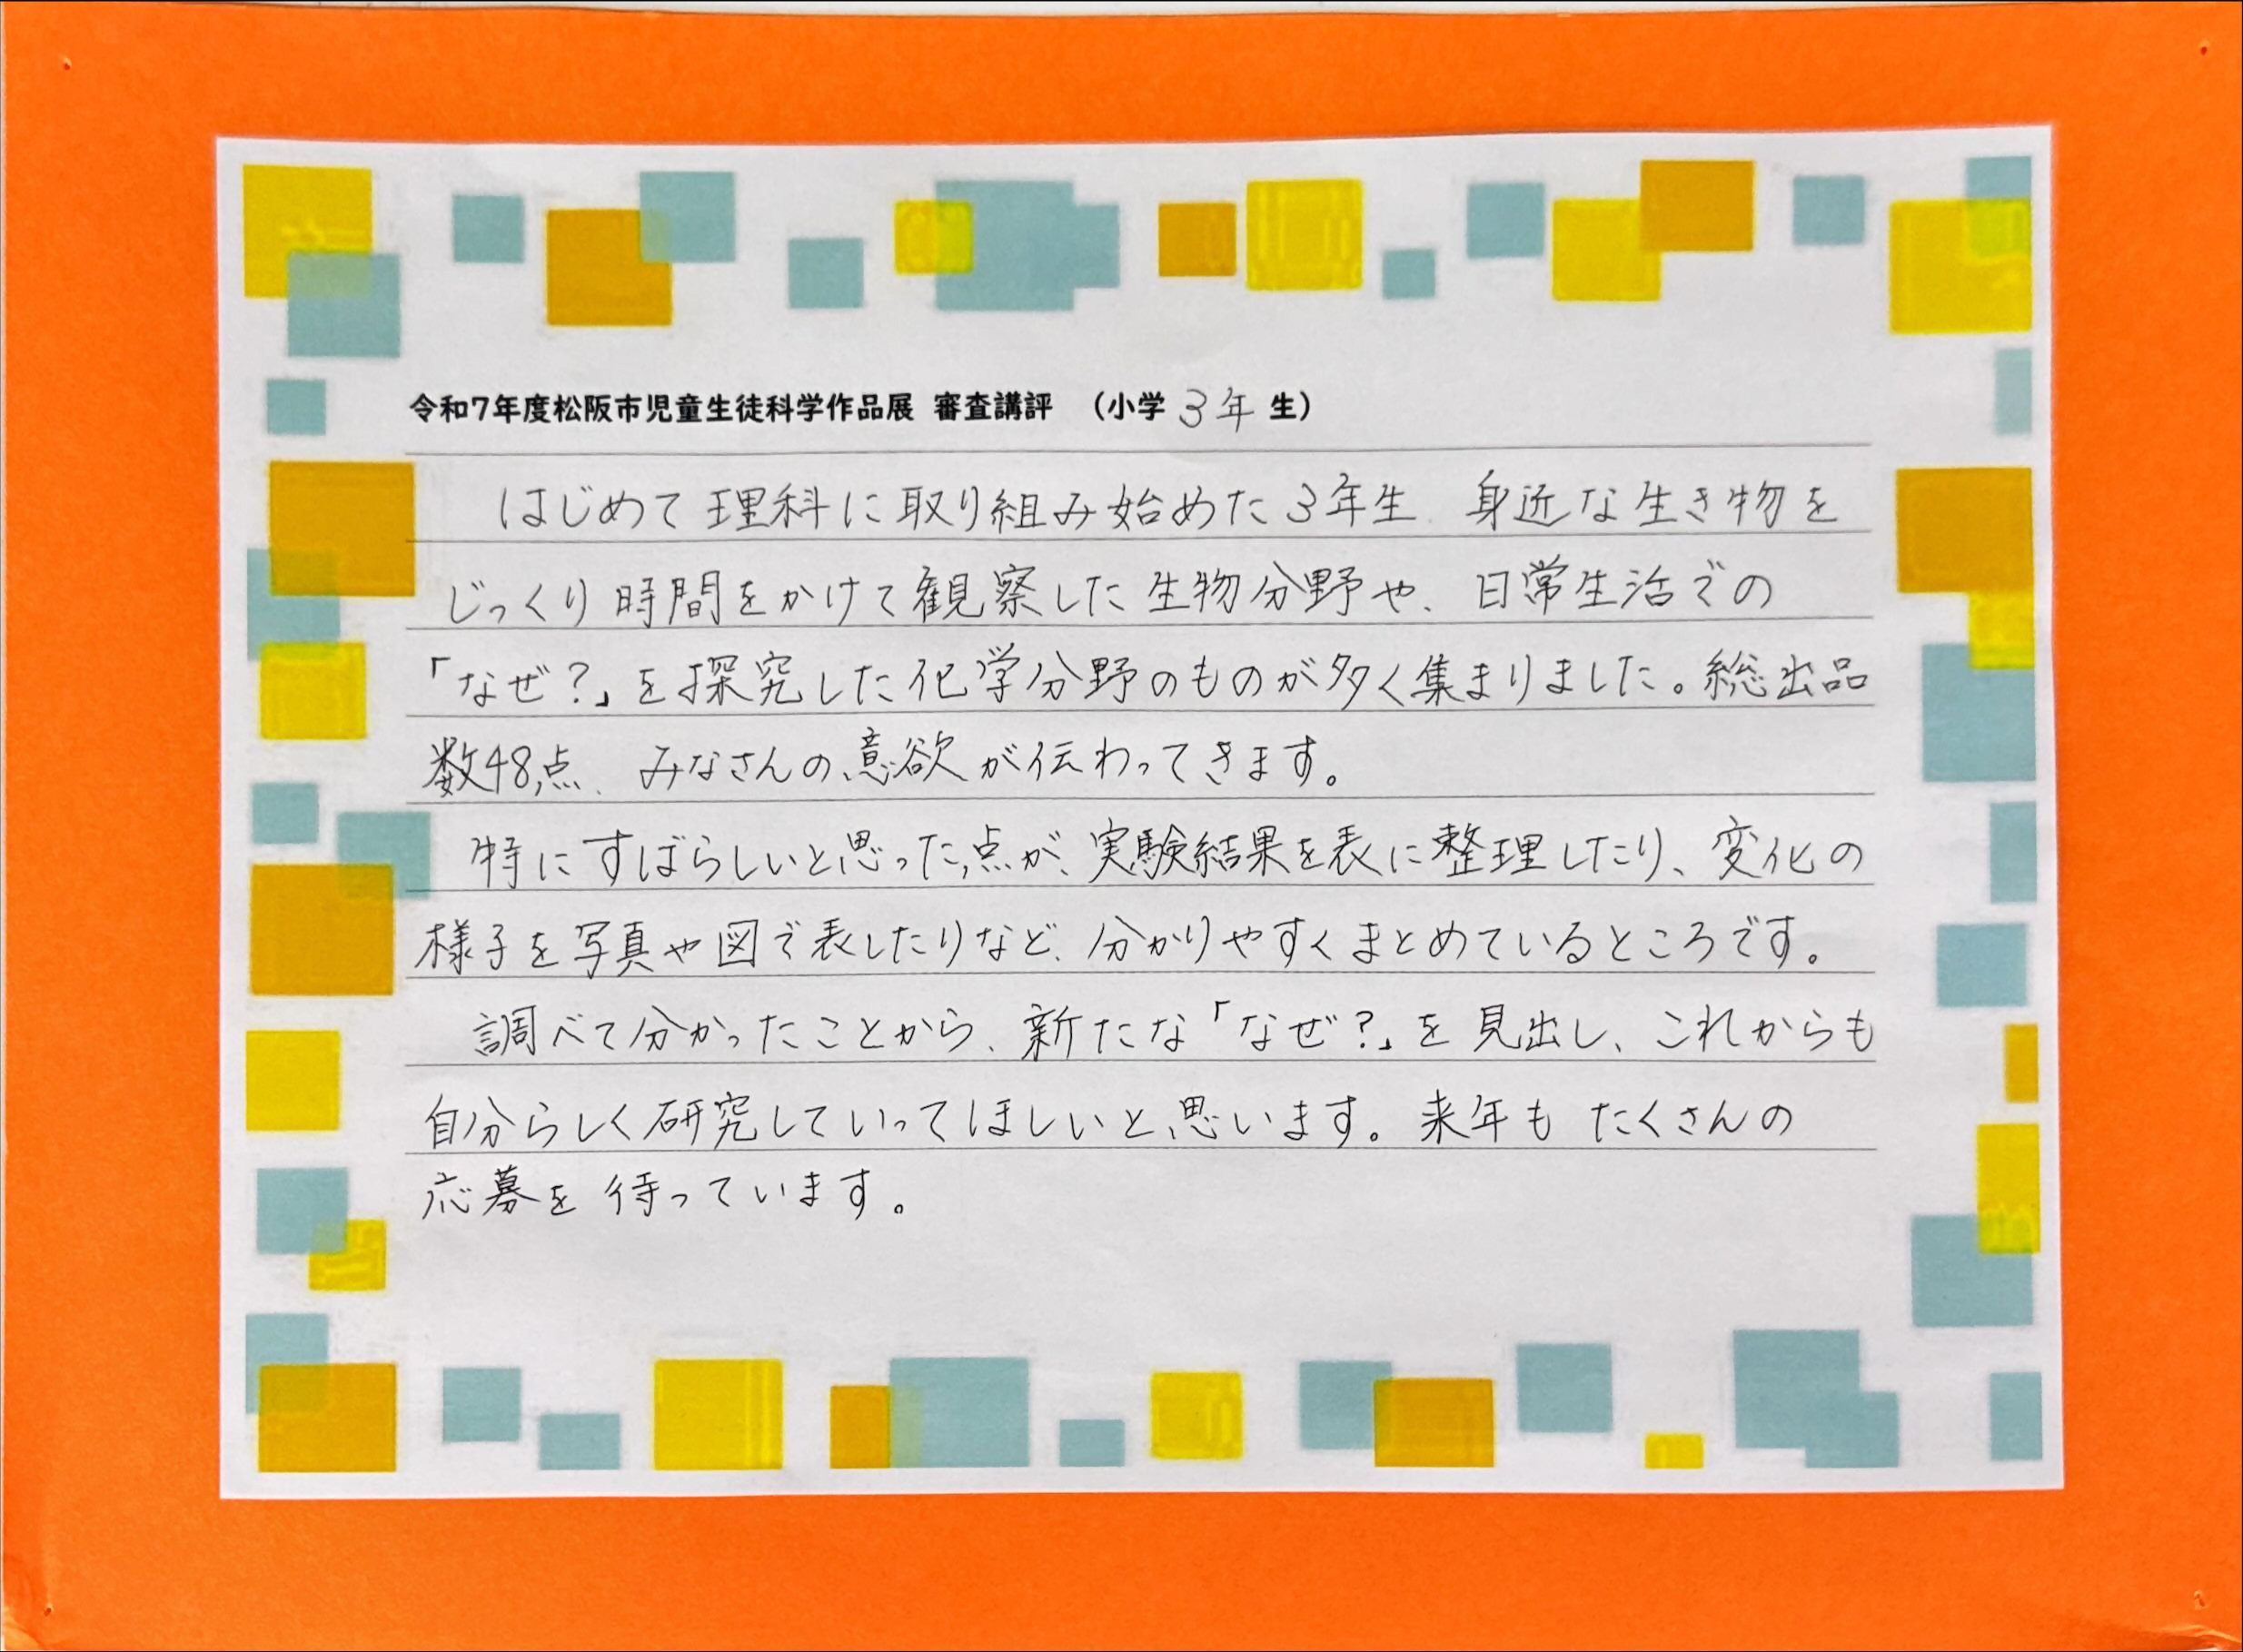 令和7年度松阪市児童生徒科学作品展 審査講評 （小学 3年 生）
はじめて理科に取り組み始めた3年生、身近な生き物を
じっくり時間をかけて観察した生物分野や、日常生活での
「なぜ？」を探究した化学分野のものが多く集まりました。総出品
数48点、みなさんの意欲が伝わってきます。
特にすばらしいと思った点が、実験結果を表に整理したり、変化の
様子を写真や図で表したりなど、分かりやすくまとめているところです。
調べて分かったことから、新たな「なぜ？」を見出し、これからも
自分らしく研究していってほしいと思います。来年もたくさんの
応募を待っています。